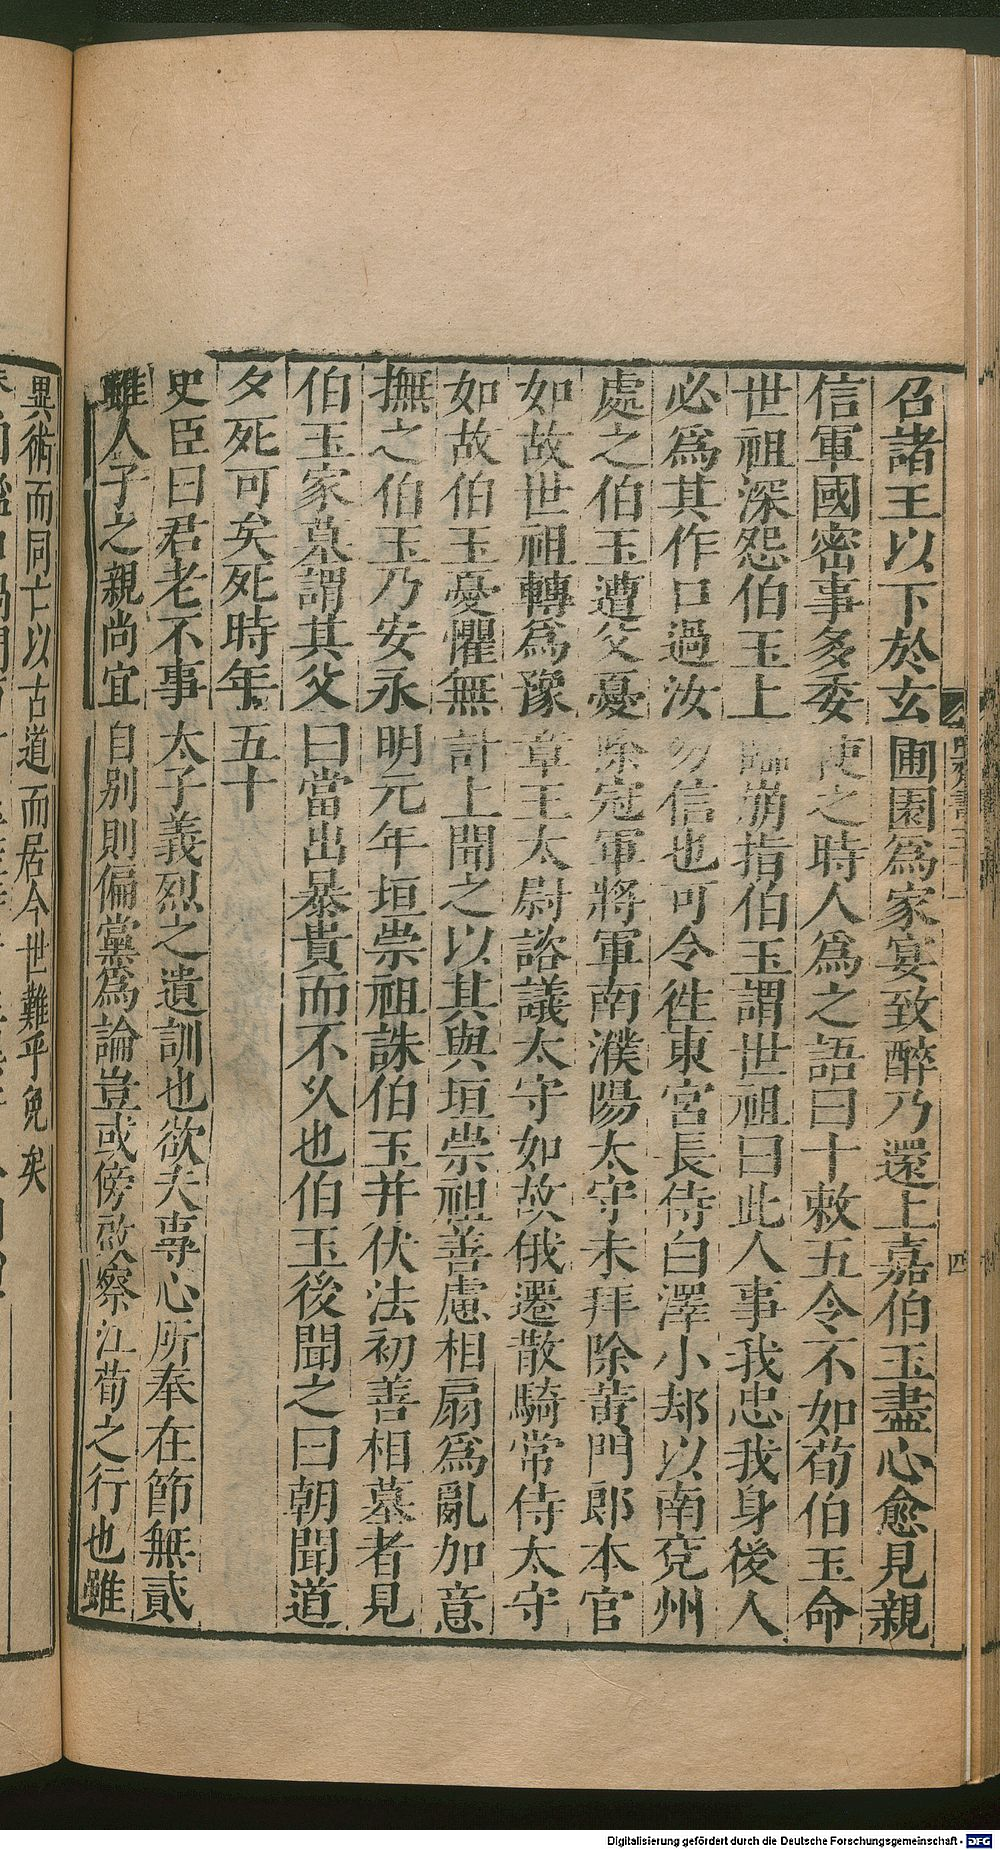 召諸王以下於玄圃園爲家宴致醉乃還上嘉伯玉盡心愈見親
信軍國密事多委使之時人爲之語曰十敕五令不如荀伯玉命
世祖深怨伯玉上臨崩指伯玉謂世祖曰此人事我忠我身後人
必爲其作口過汝勿信也可令徃東宮長侍白澤小却以南兖州
處之伯玉遭父憂除冠軍將軍南濮陽太守未拜除黄門郎本官
如故世祖轉爲豫章王太尉諮議太守如故俄遷散騎常侍太守
如故伯玉憂懼無計上聞之以其與垣崇祖善慮相扇爲亂加意
撫之伯玉乃安永明元年垣崇祖誅伯玉并伏法初善相墓者見
伯玉家墓謂其父曰當出暴貴而不久也伯玉後聞之曰朝聞道
夕死可矣死時年五十
史臣曰君老不事太子義烈之遺訓也欲夫專心所奉在節無貳
雖人子之親尚宜自别則偏黨爲論豈或傍啟察江荀之行也雖
異術而同亡以古道而居今世難乎免矣
四
Digitalisierung gefördert durch die Deutsche Forschungsgemeinschaft - DFG